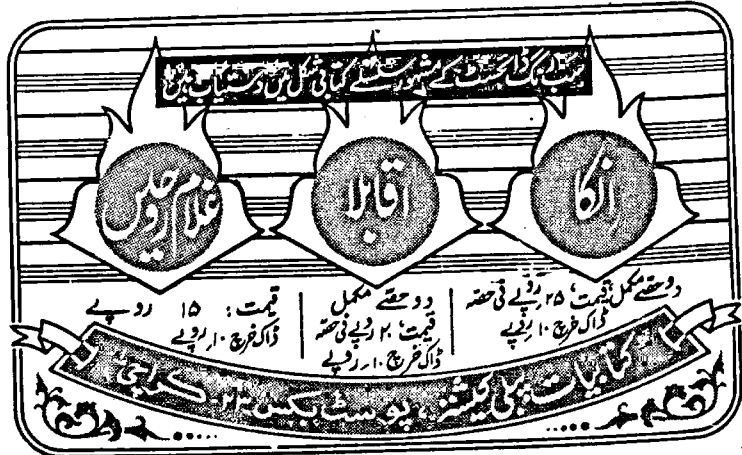 سب رنگ ڈائجسٹ کے مشہور سلسلے کتابی شکل میں دستیاب ہیں
انکا
اقابلا
غلام روحیں
دو حصّے مکمل قیمت: ۲۵ روپے فی حصّہ
ڈاک خرچ ۱۰ روپے
دو حصّے مکمل
قیمت: ۲۰ روپے فی حصّہ
ڈاک خرچ ۱۰ روپے
قیمت: ۱۵ روپے
ڈاک خرچ ۱۰ روپے
کتابیات پبلی کیشنز، پوسٹ بکس ۲۳ کراچی